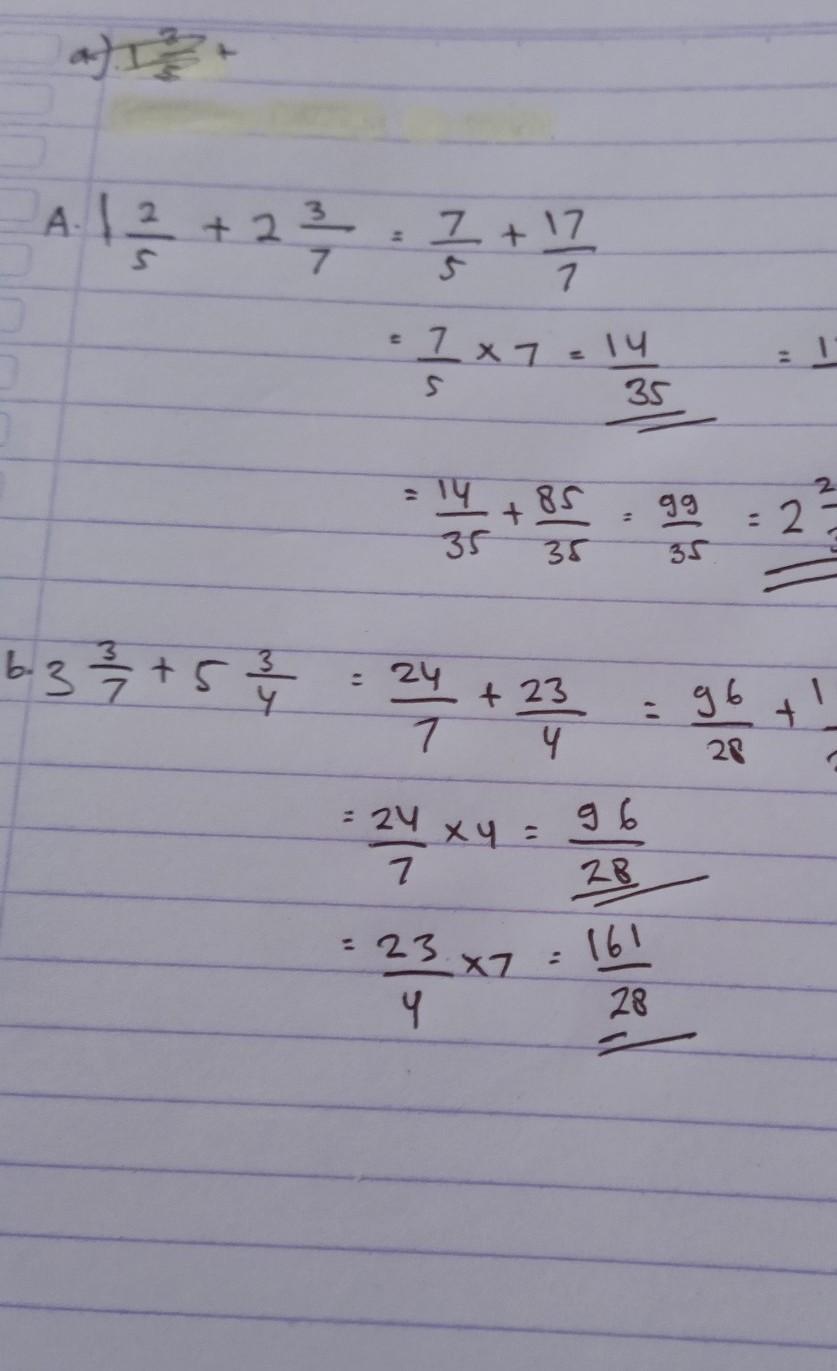 a) 1 2/5 +
A. 1 2/5 + 2 3/7 = 7/5 + 17/7
= 7/5 × 7 = 14/35 = 1
= 14/35 + 85/35 = 99/35 = 2 2
b. 3 3/7 + 5 3/4 = 24/7 + 23/4 = 96/28 + 1
= 24/7 × 4 = 96/28
= 23/4 × 7 = 161/28